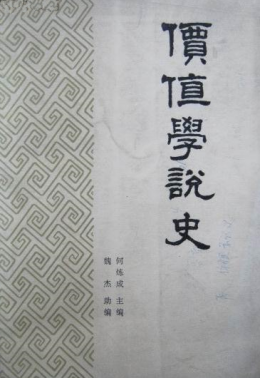 價值學說史
何炼成 主編
魏杰 助编